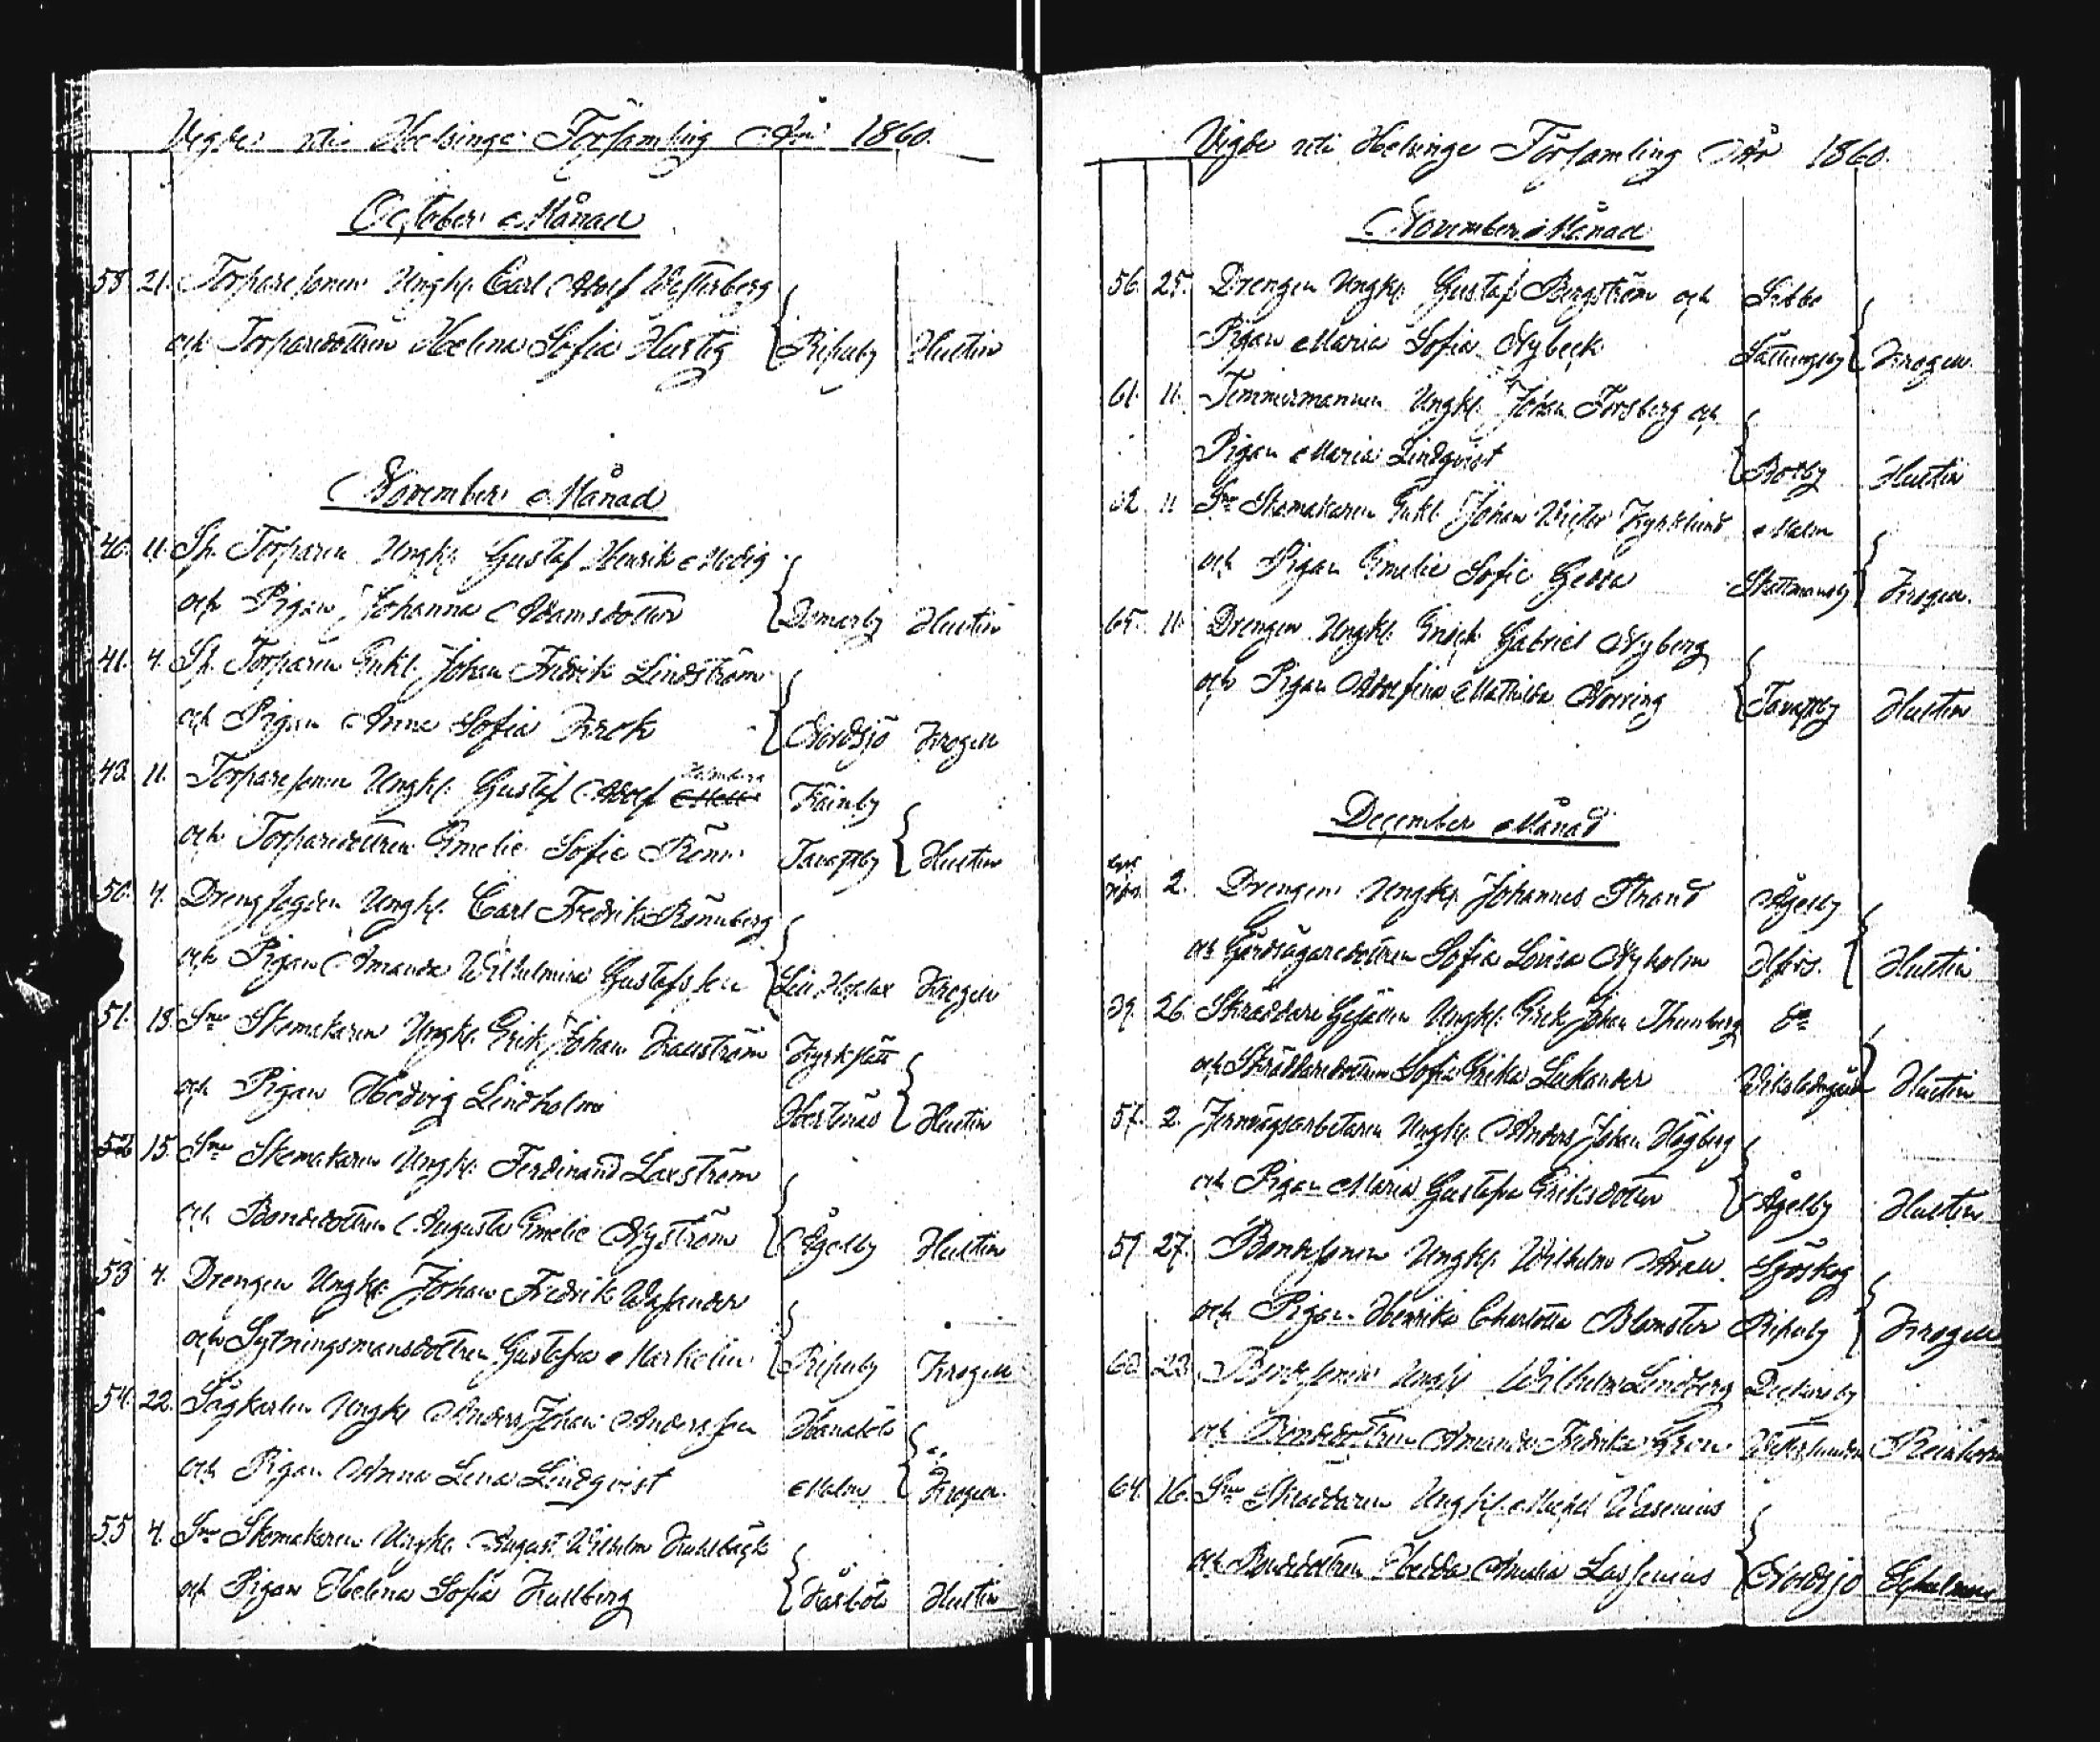 Vigde uti Helsinge Församling År 1860.
October Månad
58 21. Torparesonen Ungk. Carl Adolf Westerberg
och Torparedottren Helena Sofia Hurtig Ripuby Hustin
November Månad
40. 11. Sp. Torparen Ungk. Gustaf Henrik Medig
och Pigan Johanna Adamsdotter Domarby Hustin
41. 4. Sp. Torparen Enkl. Johan Fredrik Lindström
och Pigan Anna Sofia Krok Nordsjö Krogell
43. 11. Torparesonen Ungk. Gustaf Adolf Holmberg Fainby
och Torparedottren Emelie Sofie Rönn Tavastby Hustin
50. 4. Drengfogden Ungk. Carl Fredrik Rönnberg
och Pigan Amanda Wilhelmina Gustafsson Lill Hoplax Krogell
51. 18. Snr Skomakaren Ungk. Erik Johan Kallström Kyrkslätt
och Pigan Hedvig Lindholm Hertonäs Hustin
52 15. Snr Skomakaren Ungk. Ferdinand Laxström
och Bondedottren Augusta Emelie Nyström Ågelby Hustin
53 4. Drengen Ungk. Johan Fredrik Wasander
och Sytningsmansdottren Gustafva Markelin Ripuby Krogell
54. 22. Sågkarlen Ungk. Anders Johan Andersson Hanaböle
och Pigan Anna Lena Lindqvist Malm Krogell
55 4. Snr Skomakaren Ungk. August Wilhelm Kuhlbäck
och Pigan Helena Sofia Kullberg Kårböle Hustin
Vigde uti Helsinge Församling År 1860.
November Månad
56. 25. Drengen Ungk. Gustaf Bergström och Sibbo
Pigan Maria Sofia Nybeck Krogell
61. 11. Timmermannen Ungk. Johan Forsberg och
Pigan Maria Lindqvist Botby Hustin
62 11 Snr Skomakaren Enkl. Johan Victor Kyrklund Malm
och Pigan Emelie Sofie Gedda Skattmansby Krogell
65. 11. Drengen Ungk. Erick Gabriel Nyberg
och Pigan Adolfina Mathilda Norring Tavastby Hustin
December Månad
2. Drengen Ungk. Johannes Strand Ågelby
och Gårdsägaredottren Sofia Lovisa Nyholm Hfors. Hustin
39. 26. Skräddare Gesällen Ungk. Erik Johan Thunberg Do
och Skräddaredottren Sofia Erika Lukander Hustin
57. 2. Jernvägsarbetaren Ungk. Anders Johan Högberg
och Pigan Maria Gustafva Eriksdotter Ågelby Hustin
59 27. Bondesonen Ungk. Wilhelm Sjöskog
och Pigan Henrika Charlotta Blomster Ripuby Krogell
60 23. Bondesonen Ungk. Wilhelm Lindberg Dickursby
och Bondedottren Amanda Fredrika Grön
64. 16. Snr Skräddaren Ungk. Michel Wasenius
och Bondedottren Hedda Amalia Lassenius Nordsjö